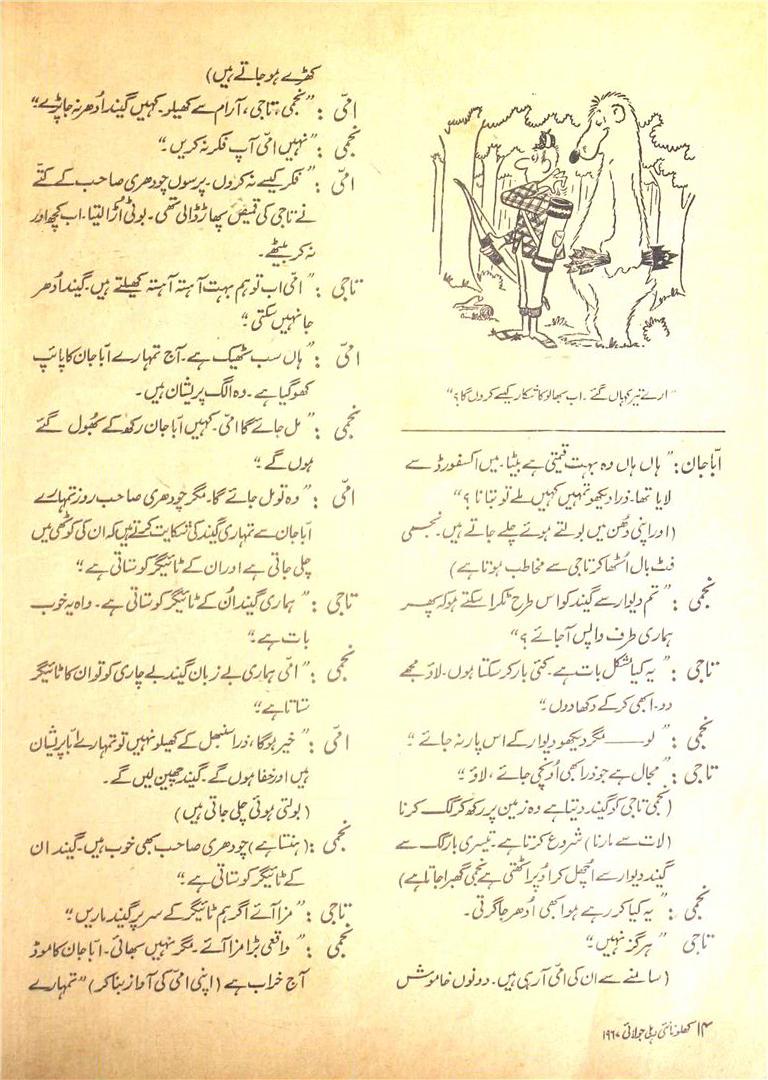 "ارے تیر کہاں گئے۔ اب بھالو کا شکار کیسے کروں گا؟"
ابّا جان: "ہاں ہاں وہ بہت قیمتی ہے بیٹا۔ میں اکسفورڈ سے
لایا تھا۔ ذرا دیکھو تمہیں کہیں ملے تو بتانا؟"
(اور اپنی دُھن میں بولتے ہوئے چلے جاتے ہیں۔ نجمی
فٹ بال اُٹھا کر تاجی سے مخاطب ہوتا ہے)
نجمی : "تم دیوار سے گیند کو اس طرح ٹکرا سکتے ہو کہ پھر
ہماری طرف واپس آ جائے؟"
تاجی : "یہ کیا مشکل بات ہے۔ کئی بار کر سکتا ہوں۔ لاؤ مجھے
دو۔ ابھی کر کے دکھا دوں۔"
نجمی : "لو —— مگر دیکھو دیوار کے اس پار نہ جائے۔"
تاجی : "مجال ہے جو ذرا بھی اُونچی جائے، لاؤ۔"
(نجمی تاجی کو گیند دیتا ہے وہ زمین پر رکھ کر کِک کرنا
(لات سے مارنا) شروع کرتا ہے۔ تیسری بار کِک سے
گیند دیوار سے اُچھل کر اُوپر اٹھتی ہے نجمی گھبرا جاتا ہے)
نجمی : "یہ کیا کر رہے ہو ابھی اُدھر جا گرتی۔
تاجی "ہرگز نہیں۔"
(سامنے سے ان کی امّی آ رہی ہیں۔ دونوں خاموش
کھڑے ہو جاتے ہیں)
امّی : "نجمی، تاجی، آرام سے کھیلو۔ کہیں گیند اُدھر نہ جا پڑے۔"
نجمی : "نہیں امّی آپ فکر نہ کریں۔"
امّی : "فکر کیسے نہ کروں۔ پرسوں چودھری صاحب کے کتّے
نے تاجی کی قمیض پھاڑ ڈالی تھی۔ بوٹی اُڑا لیتا۔ اب کچھ اور
نہ کر بیٹھے۔
تاجی : "امّی اب تو ہم بہت آہستہ آہستہ کھیلتے ہیں۔ گیند اُدھر
جا نہیں سکتی۔"
امّی : "ہاں سب ٹھیک ہے۔ آج تمہارے ابّا جان کا پائپ
کھو گیا ہے۔ وہ الگ پریشان ہیں۔
نجمی : "مل جائے گا امّی۔ کہیں ابّا جان رکھ کے بھُول گئے
ہوں گے۔"
امّی : "وہ تو مل جائے گا۔ مگر چودھری صاحب روز تمہارے
ابّا جان سے تمہاری گیند کی شکایت کرتے ہیں کہ ان کی کوٹھی میں
چلی جاتی ہے اور ان کے ٹائیگر کو ستاتی ہے۔"
تاجی : "ہماری گیند اُن کے ٹائیگر کو ستاتی ہے۔ واہ یہ خوب
بات ہے۔"
نجمی : "امّی ہماری بے زبان گیند بے چاری کو تو ان کا ٹائیگر
ستاتا ہے۔"
امّی : "خیر ہوگا، ذرا سنبھل کے کھیلو نہیں تو تمہارے ابّا پریشان
ہیں اور خفا ہوں گے۔ گیند چھین لیں گے۔
(بولتی ہوئی چلی جاتی ہیں)
نجمی : (ہنستا ہے) چودھری صاحب بھی خوب ہیں۔ گیند ان
کے ٹائیگر کو ستاتی ہے۔"
تاجی : "مزا آئے اگر ہم ٹائیگر کے سر پر گیند ماریں۔"
نجمی : "واقعی بڑا مزا آئے۔ مگر نہیں بھائی۔ ابّا جان کا موڈ
آج خراب ہے (اپنی امّی کی آواز بنا کر) "تمہارے
۱۴ کھلونا نئی دہلی جولائی ۱۹۶۷